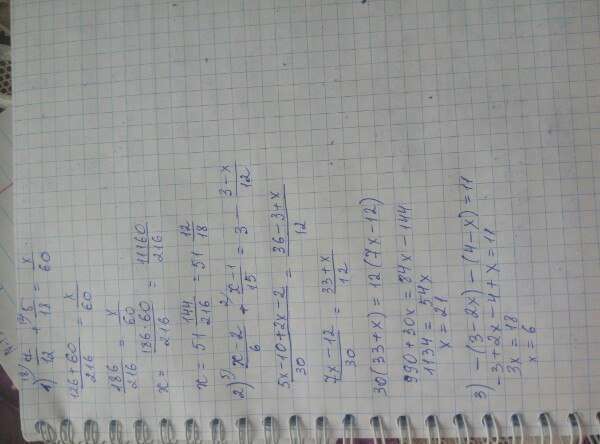 1) 7/12 + 5/18 = x/60
(126+60)/216 = x/60
186/216 = x/60
x = (186·60)/216 = 11160/216
x = 51 144/216 = 51 12/18
2) (x-2)/6 + (x-1)/15 = 3 - (3-x)/12
(5x-10+2x-2)/30 = (36-3+x)/12
(7x-12)/30 = (33+x)/12
30(33+x) = 12(7x-12)
990+30x = 84x-144
1134 = 54x
x = 21
3) -(3-2x)-(4-x) = 11
-3+2x-4+x = 11
3x = 18
x = 6